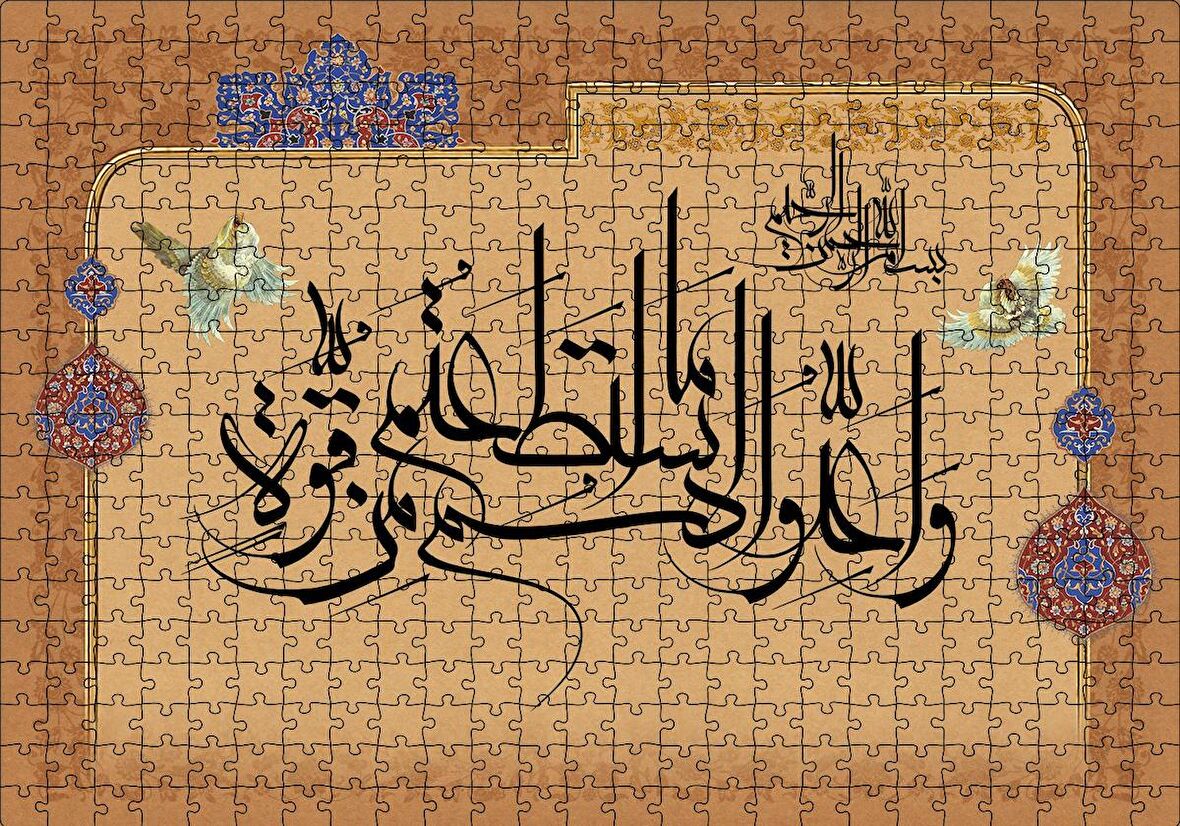 بسم الله الرحمن الرحيم
واعدوا لهم ما استطعتم من قوة